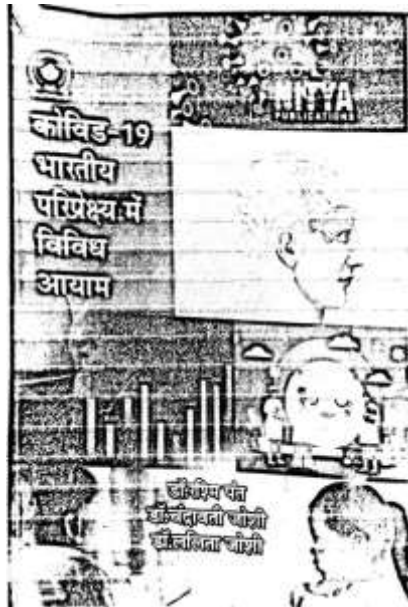 NITYA
PUBLICATIONS
कोविड-19
भारतीय
परिप्रेक्ष्य में
विविध
आयाम
डॉ. रश्मि पंत
डॉ. चंद्रावती जोशी
डॉ. ललिता जोशी